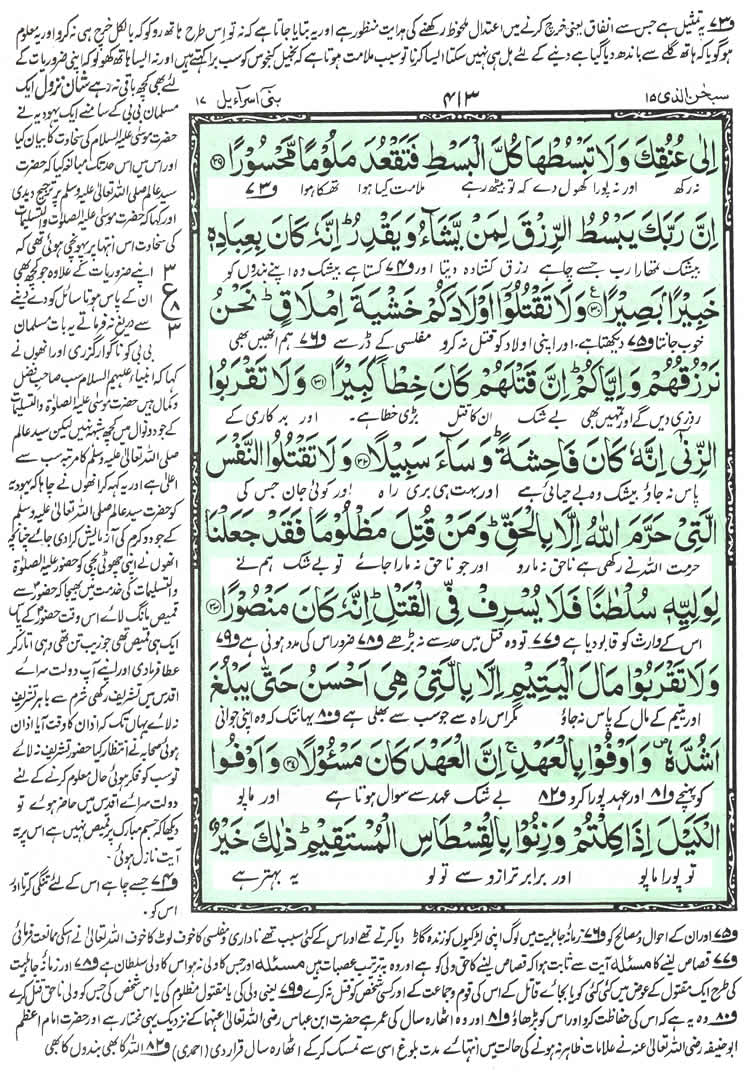 و۷۳ یہ تمثیل ہے جس سے انفاق یعنی خرچ کرنے میں اعتدال ملحوظ رکھنے کی ہدایت منظور ہے اور یہ بتایا جاتا ہے کہ نہ تو اس طرح ہاتھ روکو کہ بالکل خرچ ہی نہ کرو اور یہ معلوم
ہو گویا کہ ہاتھ گلے سے باندھ دیا گیا ہے دینے کے لئے ہل ہی نہیں سکتا ایسا کرنا تو سبب ملامت ہوتا ہے کہ بخیل کنجوس کو سب برا کہتے ہیں اور نہ ایسا ہاتھ کھولو کہ اپنی ضروریات کے
سبحٰن الذی ۱۵
۴۱۳
بنی اسرآءیل ۱۷
اِلٰى عُنُقِكَ وَلَا تَبْسُطْهَا كُلَّ الْبَسْطِ فَتَقْعُدَ مَلُوْمًا مَّحْسُوْرًا ۲۹
نہ رکھ اور نہ پورا کھول دے کہ تو بیٹھ رہے ملامت کیا ہوا تھکا ہوا و۷۳
اِنَّ رَبَّكَ يَبْسُطُ الرِّزْقَ لِمَنْ يَّشَآءُ وَيَقْدِرُ ؕ اِنَّهٗ كَانَ بِعِبَادِهٖ
بیشک تمھارا رب جسے چاہے رزق کشادہ دیتا اور و۷۴ کستا ہے بیشک وہ اپنے بندوں کو
خَبِيْرًۢا بَصِيْرًا ۳۰ وَلَا تَقْتُلُوْۤا اَوْلَادَكُمْ خَشْيَةَ اِمْلَاقٍ ؕ نَحْنُ
خوب جانتا و۷۵ دیکھتا ہے، اور اپنی اولاد کو قتل نہ کرو مفلسی کے ڈر سے و۷۶ ہم انھیں بھی
نَرْزُقُهُمْ وَاِيَّاكُمْ ؕ اِنَّ قَتْلَهُمْ كَانَ خِطْاً كَبِيْرًا ۳۱ وَلَا تَقْرَبُوا
روزی دیں گے اور تمہیں بھی بے شک ان کا قتل بڑی خطا ہے۔ اور بدکاری کے
الزِّنٰۤى اِنَّهٗ كَانَ فَاحِشَةً ؕ وَسَآءَ سَبِيْلًا ۳۲ وَلَا تَقْتُلُوا النَّفْسَ
پاس نہ جاؤ بیشک وہ بے حیائی ہے اور بہت ہی بری راہ اور کوئی جان جس کی
الَّتِيْ حَرَّمَ اللّٰهُ اِلَّا بِالْحَقِّ ؕ وَمَنْ قُتِلَ مَظْلُوْمًا فَقَدْ جَعَلْنَا
حرمت اللہ نے رکھی ہے ناحق نہ مارو اور جو ناحق نہ مارا جائے تو بے شک ہم نے
لِوَلِيِّهٖ سُلْطٰنًا فَلَا يُسْرِفْ فِّى الْقَتْلِ ؕ اِنَّهٗ كَانَ مَنْصُوْرًا ۳۳
اس کے وارث کو قابو دیا ہے و۷۷ تو وہ قتل میں حد سے نہ بڑھے و۷۸ ضرور اس کی مدد ہونی ہے و۷۹
وَلَا تَقْرَبُوْا مَالَ الْيَتِيْمِ اِلَّا بِالَّتِيْ هِىَ اَحْسَنُ حَتّٰى يَبْلُغَ
اور یتیم کے مال کے پاس نہ جاؤ مگر اس راہ سے جو سب سے بھلی ہے و۸۰ یہانتک کہ وہ اپنی جوانی
اَشُدَّهٗ ۪ وَاَوْفُوْا بِالْعَهْدِ ۚ اِنَّ الْعَهْدَ كَانَ مَسْـُٔوْلًا ۳۴ وَاَوْفُوا
کو پہنچے و۸۱ اور عہد پورا کرو و۸۲ بے شک عہد سے سوال ہونا ہے اور ماپو
الْكَيْلَ اِذَا كِلْتُمْ وَزِنُوْا بِالْقِسْطَاسِ الْمُسْتَقِيْمِ ؕ ذٰلِكَ خَيْرٌ
تو پورا ماپو اور برابر ترازو سے تولو یہ بہتر ہے
لئے بھی کچھ باقی نہ رہے شان نزول ایک
مسلمان بی بی کے سامنے ایک یہودیہ نے
حضرت موسیٰ علیہ السلام کی سخاوت کا بیان کیا
اور اس میں اس حد تک مبالغہ کیا کہ حضرت
سید عالم صلی اللہ تعالیٰ علیہ وسلم پر ترجیح دیدی
اور کہا کہ حضرت موسیٰ علیہ الصلوٰۃ والتسلیمات
کی سخاوت اس انتہا پر پہونچی ہوئی تھی کہ
اپنے ضروریات کے علاوہ جو کچھ بھی
ان کے پاس ہوتا سائل کو دے دینے
سے دریغ نہ فرماتے یہ بات مسلمان
۳
ع
۸
۳
بی بی کو ناگوار گزری اور انھوں نے
کہا کہ انبیاء علیہم السلام سب صاحب فضل
و کمال ہیں حضرت موسیٰ علیہ الصلوٰۃ والتسلیمات
کے جود و نوال میں کچھ شبہ نہیں لیکن سید عالم
صلی اللہ تعالیٰ علیہ وسلم کا مرتبہ سب سے
اعلیٰ ہے اور یہ کہہ کر انھوں نے چاہا کہ یہودیہ
کو حضرت سید عالم صلی اللہ تعالیٰ علیہ وسلم
کے جود و کرم کی آزمائش کرا دی جائے چنانچہ
انھوں نے اپنی چھوٹی بچی کو حضور علیہ الصلوٰۃ
والتسلیمات کی خدمت میں بھیجا کہ حضور سے
قمیص مانگ لائے اس وقت حضور کے پاس
ایک ہی قمیص تھی جو زیب تن تھی وہی اتار کر
عطا فرما دی اور اپنے آپ دولت سرائے
اقدس میں تشریف رکھی شرم سے باہر تشریف
نہ لائے یہاں تک کہ اذان کا وقت آیا اذان
ہوئی صحابہ نے انتظار کیا حضور تشریف نہ لائے
تو سب کو فکر ہوئی حال معلوم کرنے کے لئے
دولت سرائے اقدس میں حاضر ہوئے تو
دیکھا کہ جسم مبارک پر قمیص نہیں ہے اس پر یہ
آیت نازل ہوئی
و۷۴ جسے چاہے اس کے لئے تنگی کرتا اور
اس کو
و۷۵ اور ان کے احوال و مصالح کو و۷۶ زمانہ جاہلیت میں لوگ اپنی لڑکیوں کو زندہ گاڑ دیا کرتے تھے اور اس کے کئی سبب تھے ناداری و مفلسی کا خوف لوٹ کا خوف اللہ تعالیٰ نے اسکی ممانعت فرمائی
و۷۷ قصاص لینے کا مسئلہ آیت سے ثابت ہوا کہ قصاص لینے کا حق ولی کو ہے اور وہ بہ ترتیب عصبات ہیں مسئلہ اور جس کا ولی نہ ہو اس کا ولی سلطان ہے و۷۸ اور زمانہ جاہلیت
کی طرح ایک مقتول کے عوض میں کئی کئی کو یا بجائے قاتل کے اس کی قوم و جماعت کے اور کسی شخص کو قتل نہ کرے و۷۹ یعنی ولی کی یا مقتول مظلوم کی یا اس شخص کی جس کو ولی ناحق قتل کرے
و۸۰ وہ یہ ہے کہ اس کی حفاظت کرو اور اس کو بڑھاؤ و۸۱ اور وہ اٹھارہ سال کی عمر ہے حضرت ابن عباس رضی اللہ تعالیٰ عنہما کے نزدیک یہی مختار ہے اور حضرت امام اعظم
ابو حنیفہ رضی اللہ تعالیٰ عنہ نے علامات ظاہر نہ ہونے کی حالت میں انتہائے مدت بلوغ اسی سے تمسک کر کے اٹھارہ سال قرار دی (احمدی) و۸۲ اللہ کا بھی بندوں کا بھی